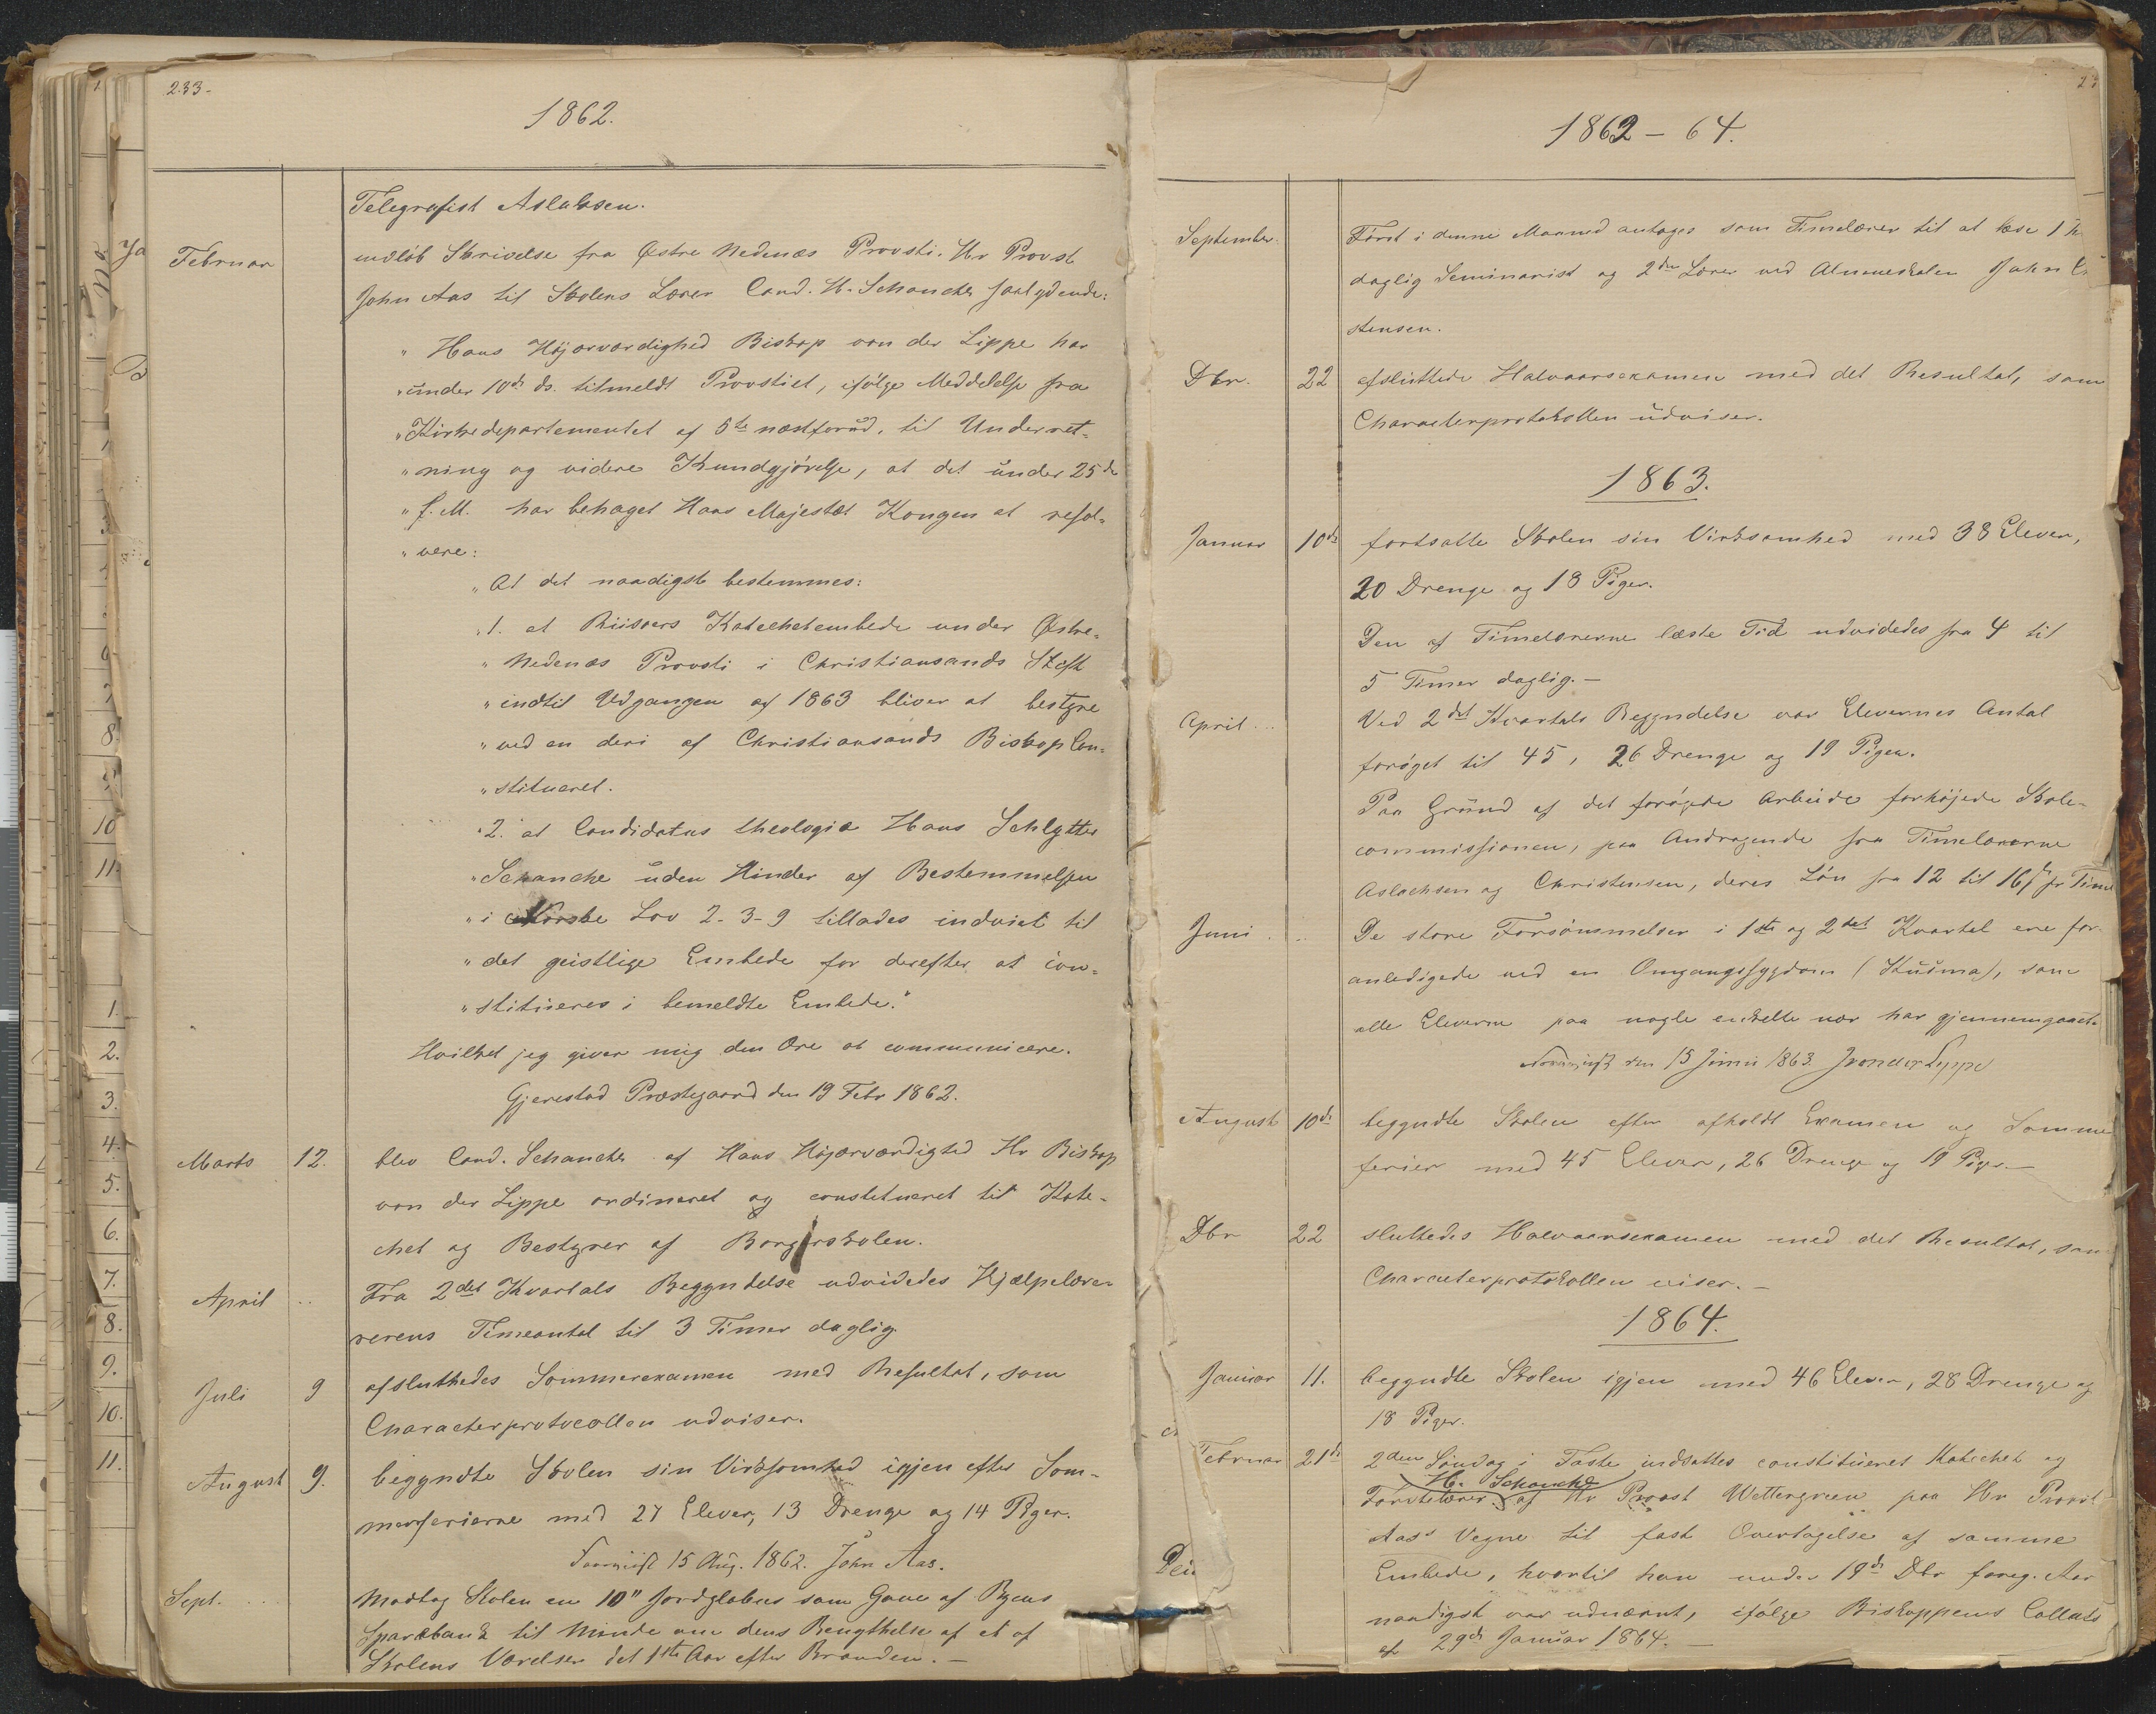 233.
1862.
Telegrafist Aslaksen.
Februar indløb Skrivelse fra Østre Nedenæs Provsti. Hr Provst
John Aas til Skolens Lærer Cand. H. Schanche saalydende:
" Hans Højærværdighed Biskop von der Lippe har
" under 10de ds. tilmeldt Provstiet, ifølge Meddelelse fra
" Kirkedepartementet af 5te næstforud, til Underret-
" ning og videre Kundgjørelse, at det under 25de
" f. M. har behaget Hans Majestæt Kongen at resol-
" vere:
" At det naadigst bestemmes:
" 1. at Riisøers Katechetembede under Østre-
" Nedenæs Provsti i Christiansands Stift
" indtil Udgangen af 1863 bliver at bestyre
" ved en deri af Christiansands Biskop Con-
" stitueret.
" 2. at Candidatus theologiæ Hans Schlytter
" Schanche uden Hinder af Bestemmelsen
" i Norske Lov 2-3-9 tillades indviet til
" det geistlige Embede for derefter at con-
" stitueres i bemeldte Embede."
Hvilket jeg giver mig den Ære at communicere.
Gjerestad Præstegaard den 19 Febr 1862.
Marts 12. blev Cand. Schanche af Hans Højærværdighed Hr Biskop
von der Lippe ordineret og constitueret til Kate-
chet og Bestyrer af Borgerskolen.
April .. Fra 2det Kvartals Begyndelse udvidedes Hjælpelære-
rerens Timeantal til 3 Timer daglig.
Juli 9 afsluttedes Sommerexamen med Resultat, som
Characterprotocollen udviser.
August 9. begyndte Skolen sin Virksomhed igjen efter Som-
merferierne med 27 Elever, 13 Drenge og 14 Piger.
15 Aug. 1862. John Aas.
Sept. ... Modtog Skolen en 10" Jordglobus som Gave af Byens
Sparebank til Minde om dens Benyttelse af et af
Skolens Værelser det 1ste Aar efter Branden. —
1862 – 64.
September. Først i denne Maaned antoges som Timelærer til at læse 1
daglig Seminarist og 2den Lærer ved Almueskolen John
stensen.
Dbr. 22 afsluttede Halvaarsexamen med det Resultat, som
Characterprotokollen udviser.
1863.
Januar 10de fortsatte Skolen sin Virksomhed med 38 Elever,
20 Drenge og 18 Piger.
Den af Timelærerne læste Tid udvidedes fra 4 til
5 Timer daglig. —
April ... Ved 2det Kvartals Begyndelse var Elevernes Antal
forøget til 45, 26 Drenge og 19 Piger.
Paa Grund af det forøgede Arbeide forhøjede Skole-
commissionen, paa Andragende fra Timelærerne
Aslachsen og Christensen, deres Løn fra 12 til 16 pr Time
Juni . .. De store Forsømmelser i 1ste og 2det Kvartal ere for-
anledigede ved en Omgangssygdom (Kusma), som
alle Eleverne paa nogle enkelte nær har gjennemgaaet.
den 15 Juni 1863. J von der Lippe
August 10de begyndte Skolen efter afholdt Examen og Somme
ferier med 45 Elever, 26 Drenge og 19 Piger. —
Dbr 22 sluttedes Halvaarsexamen med det Resultat, som
Characterprotokollen viser. —
1864.
Januar 11. begyndte Skolen igjen med 46 Elever, 28 Drenge og
18 Piger.
Februar 21de 2den Søndag i Faste indsattes constitueret Katechet og
H. Schanche
Førstelærer af Hr Provst Wettergreen paa Hr Provst
Aas's Vegne til fast Overtagelse af samme
Embede, hvortil han under 19de Dbr foreg. Aar
naadigst var udnævnt, ifølge Biskoppens Collats
af 29de Januar 1864. —